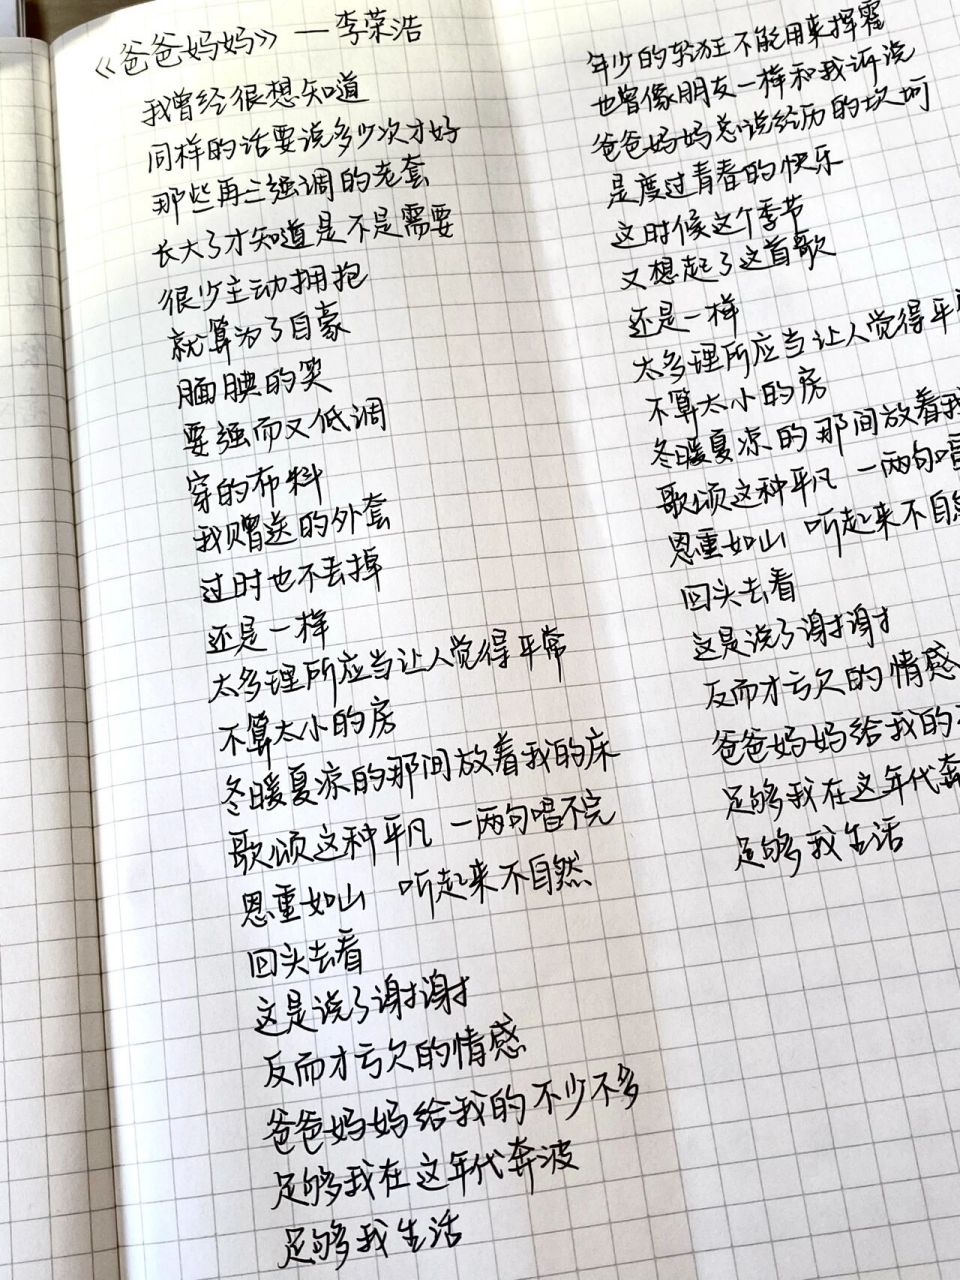 《爸爸妈妈》—李荣浩
我曾经很想知道
同样的话要说多少次才好
那些再三强调的老套
长大了才知道是不是需要
很少主动拥抱
就算为了自豪
腼腆的笑
要强而又低调
穿的布料
我赠送的外套
过时也不丢掉
还是一样
太多理所应当让人觉得平常
不算太小的房
冬暖夏凉的那间放着我的床
歌颂这种平凡 一两句唱不完
恩重如山 听起来不自然
回头去看
这是说了谢谢
反而才亏欠的情感
爸爸妈妈给我的不少不多
足够我在这年代奔波
足够我生活
年少的轻狂不能用来挥霍
也曾像朋友一样和我诉说
爸爸妈妈总说经历的坎坷
是度过青春的快乐
这时候这个季节
又想起了这首歌
还是一样
太多理所应当让人觉得平
不算太小的房
冬暖夏凉的那间放着我
歌颂这种平凡 一两句唱
恩重如山 听起来不自然
回头去看
这是说了谢谢
反而才亏欠的情感
爸爸妈妈给我的不
足够我在这年代奔
足够我生活